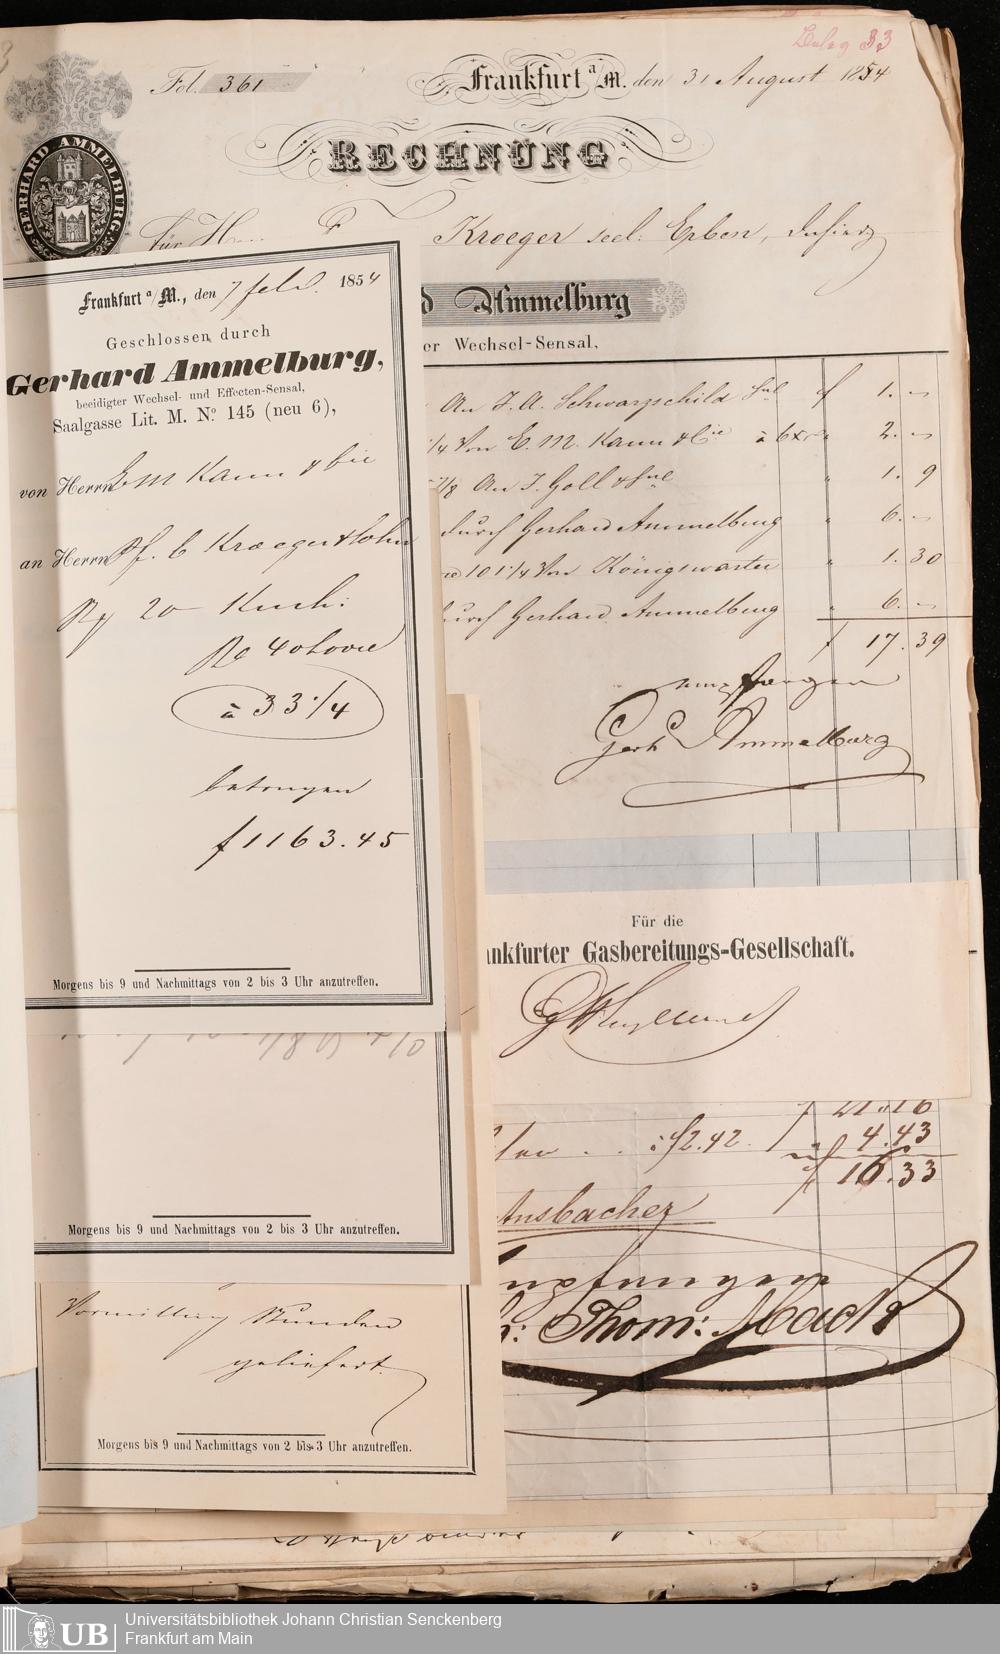 Beleg 33
Fol. 361
Frankfurt a/M. den 31 August 1854
RECHNUNG
GERHARD AMMELBURG
für H
Kroeger seel: Erben, dahier
Ammelburg
er Wechsel-Sensal,
An J. A. Schwarzschild f 1. "
1/4 Von E. M. Kann & Cie à 6 xr " 2. "
7/8 An J. Goll & " 1. 9
durch Gerhard Ammelburg " 6. "
101 1/4 Von Königswarter " 1. 30
durch Gerhard Ammelburg " 6. "
f 17. 39
empfangen
Gerh Ammelburg
Frankfurt a/M., den 7 febr. 1854
Geschlossen durch
Gerhard Ammelburg,
beeidigter Wechsel- und Effecten-Sensal,
Saalgasse Lit. M. No. 145 (neu 6),
von Herrn E M Kann & Cie
an Herrn Pf. C Kroeger & Sohn
20
40
à 33 1/4
betragen
f 1163. 45
Morgens bis 9 und Nachmittags von 2 bis 3 Uhr anzutreffen.
Für die
ankfurter Gasbereitungs-Gesellschaft.
Morgens bis 9 und Nachmittags von 2 bis 3 Uhr anzutreffen.
f 21. 16
f 2. 42. 4. 43
f 16. 33
Ansbacher
Thom: Mack
Vormittag Stunden
geliefert.
Morgens bis 9 und Nachmittags von 2 bis 3 Uhr anzutreffen.
UB
Universitätsbibliothek Johann Christian Senckenberg
Frankfurt am Main